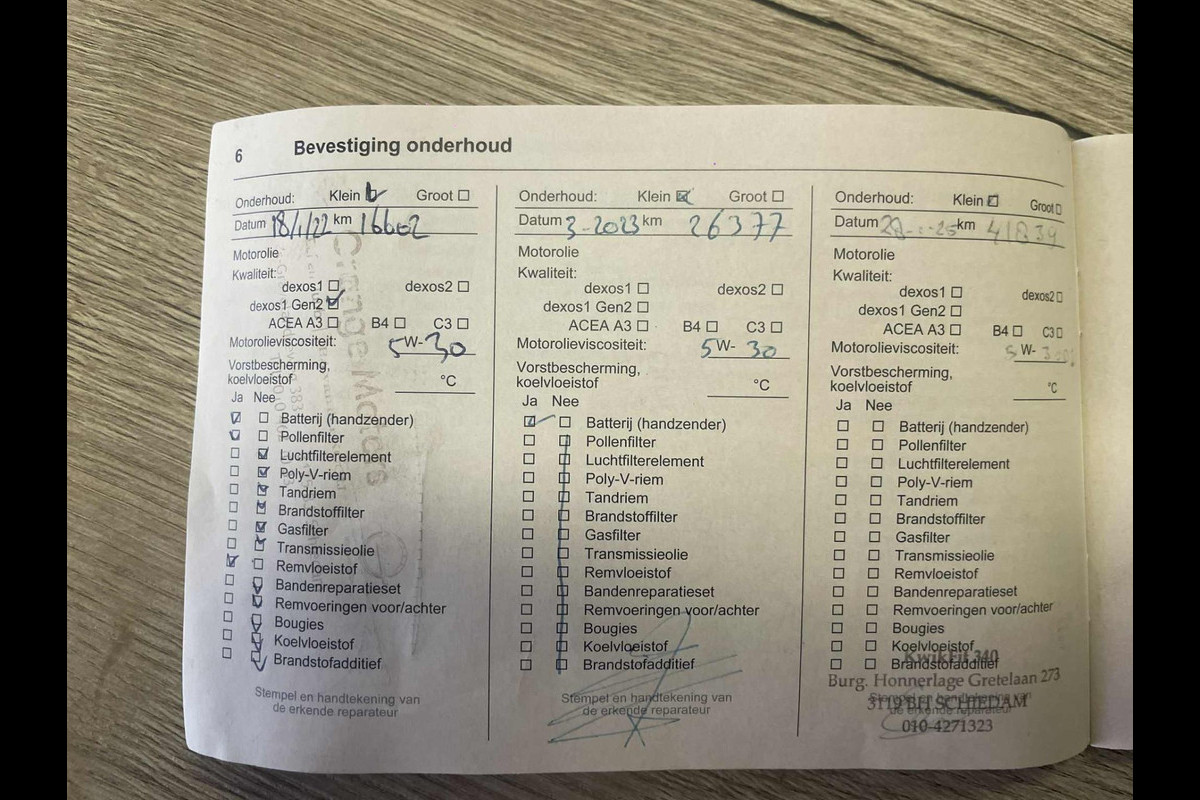 6 Bevestiging onderhoud
Onderhoud: Klein Groot
Datum 18/1/22 km 16602
Motorolie
Kwaliteit:
dexos1 dexos2
dexos1 Gen2
ACEA A3 B4 C3
Motorolieviscositeit: 5W-30
Vorstbescherming,
koelvloeistof °C
Ja Nee
Batterij (handzender)
Pollenfilter
Luchtfilterelement
Poly-V-riem
Tandriem
Brandstoffilter
Gasfilter
Transmissieolie
Remvloeistof
Bandenreparatieset
Remvoeringen voor/achter
Bougies
Koelvloeistof
Brandstofadditief
Stempel en handtekening van
de erkende reparateur
Onderhoud: Klein Groot
Datum 3-2023 km 26377
Motorolie
Kwaliteit:
dexos1 dexos2
dexos1 Gen2
ACEA A3 B4 C3
Motorolieviscositeit: 5W-30
Vorstbescherming,
koelvloeistof °C
Ja Nee
Batterij (handzender)
Pollenfilter
Luchtfilterelement
Poly-V-riem
Tandriem
Brandstoffilter
Gasfilter
Transmissieolie
Remvloeistof
Bandenreparatieset
Remvoeringen voor/achter
Bougies
Koelvloeistof
Brandstofadditief
Stempel en handtekening van
de erkende reparateur
Onderhoud: Klein Groot
Datum km 41839
Motorolie
Kwaliteit:
dexos1 dexos2
dexos1 Gen2
ACEA A3 B4 C3
Motorolieviscositeit: 5W-
Vorstbescherming,
koelvloeistof °C
Ja Nee
Batterij (handzender)
Pollenfilter
Luchtfilterelement
Poly-V-riem
Tandriem
Brandstoffilter
Gasfilter
Transmissieolie
Remvloeistof
Bandenreparatieset
Remvoeringen voor/achter
Bougies
Koelvloeistof
Brandstofadditief
KwikFit 340
Burg. Honnerlage Gretelaan 273
Stempel en handtekening van
3119 BH SCHIEDAM
de erkende reparateur
010-4271323